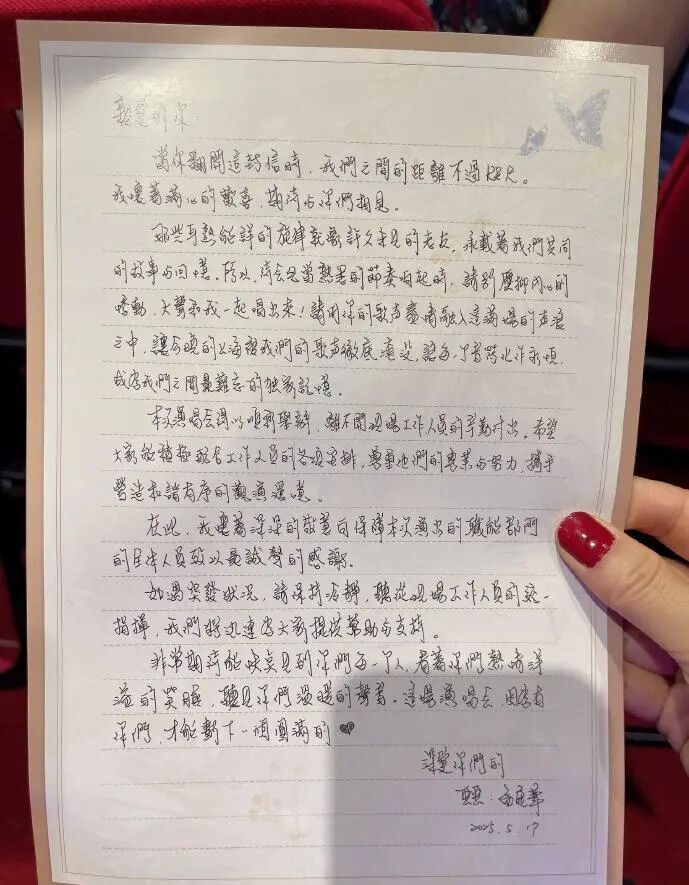 親愛的你：
當你翻開這封信時，我們之間的距離不過咫尺。
我懷著滿心的歡喜，期待与你們相見。
那些耳熟能詳的旋律就像許久未見的老友，承載著我們共同
的故事与回憶。所以，待会兒當熟悉的節奏响起時，請別壓抑內心的
嗨動，大聲和我一起唱出來！請用你的歌声盡情融入這滿場的声浪
之中，讓今晚的上海被我們的歌声徹底淹没，讓每一个音符化作永恆，
成為我們之間最難忘的独家記憶。
本次演唱会得以順利舉辦，離不開現場工作人員的辛勤付出。希望
大家能積極配合工作人員的各項安排，尊重他們的專業与努力，攜手
營造和諧有序的觀演環境。
在此，我懷著深深的敬意向保障本次演出的職能部門
的全体人員致以最誠摯的感謝。
如遇突發狀況，請保持冷靜，聽從現場工作人員的統一
指揮，我們將迅速為大家提供幫助与支持。
非常期待能味見到你們每一个人，看著你們熱情洋
溢的笑臉，聽見你們溫暖的聲音。這場演唱会，因為有
你們，才能劃下一個圓滿的
深愛你們的
2025.5.17